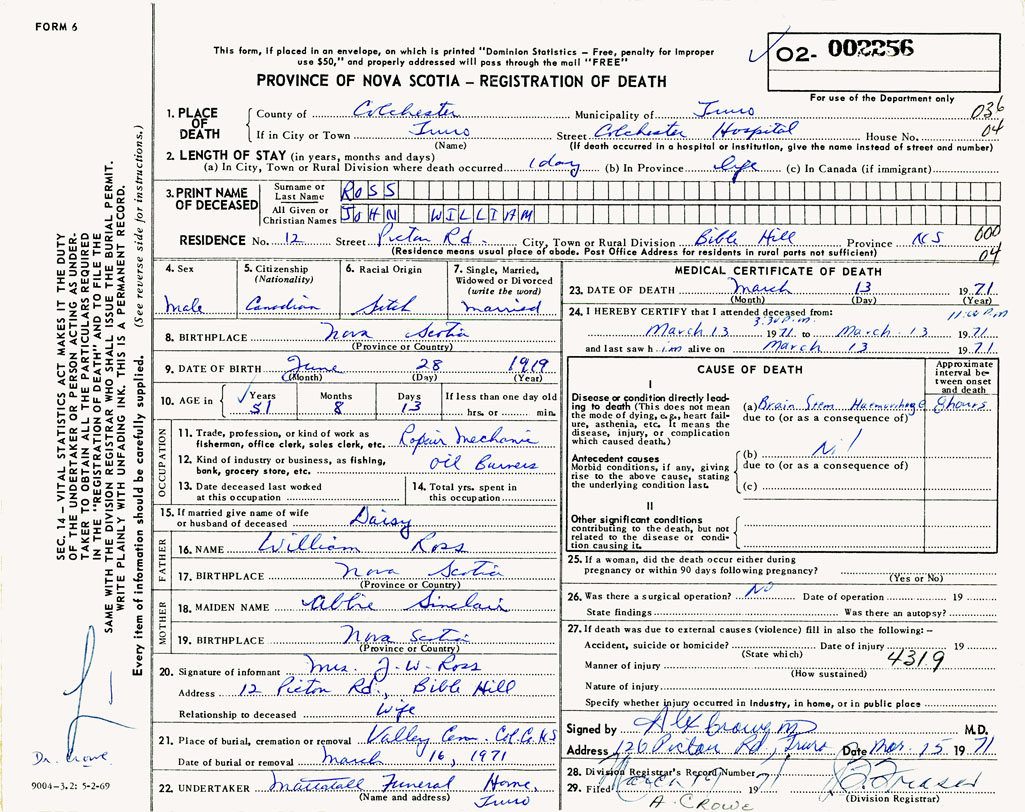 FORM 6
This form, if placed in an envelope, on which is printed "Dominion Statistics – Free, penalty for improper
use $50," and properly addressed will pass through the mail "FREE"
O2- 002256
PROVINCE OF NOVA SCOTIA – REGISTRATION OF DEATH
For use of the Department only
1. PLACE OF DEATH
County of Colchester Municipality of Truro 036
If in City or Town Truro Street Colchester Hospital House No. 04
(Name) (If death occurred in a hospital or institution, give the name instead of street and number)
2. LENGTH OF STAY (in years, months and days)
(a) In City, Town or Rural Division where death occurred 1 day (b) In Province life (c) In Canada (if immigrant)
3. PRINT NAME OF DECEASED
Surname or Last Name ROSS
All Given or Christian Names JOHN WILLIAM
RESIDENCE No. 12 Street Picton Rd. City, Town or Rural Division Bible Hill Province NS 600
(Residence means usual place of abode. Post Office Address for residents in rural parts not sufficient) 04
4. Sex
Male
5. Citizenship (Nationality)
Canadian
6. Racial Origin
7. Single, Married, Widowed or Divorced (write the word)
Married
8. BIRTHPLACE Nova Scotia
(Province or Country)
9. DATE OF BIRTH June 28 1919
(Month) (Day) (Year)
10. AGE in
Years Months Days If less than one day old
51 8 13 hrs. or min.
OCCUPATION
11. Trade, profession, or kind of work as fisherman, office clerk, sales clerk, etc. Repair Mechanic
12. Kind of industry or business, as fishing, bank, grocery store, etc. Oil Burners
13. Date deceased last worked at this occupation
14. Total yrs. spent in this occupation
15. If married give name of wife or husband of deceased Daisy
FATHER
16. NAME William Ross
17. BIRTHPLACE Nova Scotia
(Province or Country)
MOTHER
18. MAIDEN NAME Abbie Sinclair
19. BIRTHPLACE Nova Scotia
(Province or Country)
20. Signature of informant Mrs. J. W. Ross
Address 12 Picton Rd., Bible Hill
Relationship to deceased Wife
21. Place of burial, cremation or removal Valley Cem. Col. Co. N S
Date of burial or removal March 16, 1971
22. UNDERTAKER Mattatall Funeral Home,
(Name and address) Truro
MEDICAL CERTIFICATE OF DEATH
23. DATE OF DEATH March 13 1971
(Month) (Day) (Year)
24. I HEREBY CERTIFY that I attended deceased from: 11:00 P.m
3.30 P.m.
March 13 1971 to March 13 1971
and last saw him alive on March 13 1971
CAUSE OF DEATH
Approximate interval between onset and death
I
Disease or condition directly leading to death (This does not mean the mode of dying, e.g., heart failure, asthenia, etc. It means the disease, injury, or complication which caused death.)
(a) Brain Stem Haemorrhage 8 hours
due to (or as a consequence of)
Antecedent causes
Morbid conditions, if any, giving rise to the above cause, stating the underlying condition last.
(b) Nil
due to (or as a consequence of)
(c)
II
Other significant conditions
contributing to the death, but not related to the disease or condition causing it.
25. If a woman, did the death occur either during
pregnancy or within 90 days following pregnancy?
(Yes or No)
26. Was there a surgical operation? No Date of operation 19
State findings Was there an autopsy?
27. If death was due to external causes (violence) fill in also the following: –
Accident, suicide or homicide? Date of injury 19
(State which) 4319
Manner of injury
(How sustained)
Nature of injury
Specify whether injury occurred in Industry, in home, or in public place
Signed by Alex Crowe M.D.
Address 126 Picton Rd, Truro Date Mar. 15 1971
28. Division Registrar's Record Number
29. Filed March 1971
B. Fraser
(Division Registrar)
A. CROWE
SEC. 14 – VITAL STATISTICS ACT MAKES IT THE DUTY
OF THE UNDERTAKER OR PERSON ACTING AS UNDERTAKER
TO OBTAIN ALL THE PARTICULARS REQUIRED
IN THE "REGISTRATION OF DEATH" AND TO FILE THE
SAME WITH THE DIVISION REGISTRAR WHO SHALL ISSUE THE BURIAL PERMIT.
WRITE PLAINLY WITH UNFADING INK. THIS IS A PERMANENT RECORD.
Every item of information should be carefully supplied. (See reverse side for instructions.)
Dr. Crowe
9004-3.2: 5-2-69